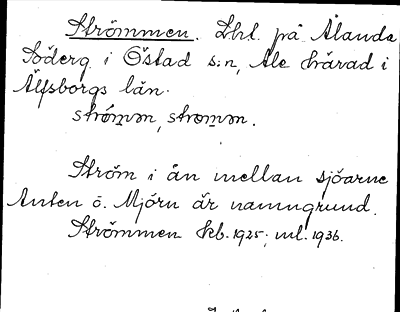 Strömmen. Lht. på Ålanda
Söderg. i Östad s:n, Ale härad i
Älfsborgs län.
strömən, strømən.
Ström i ån mellan sjöarne
Anten o. Mjörn är namngrund.
Strömmen Kb. 1925; ml. 1936.